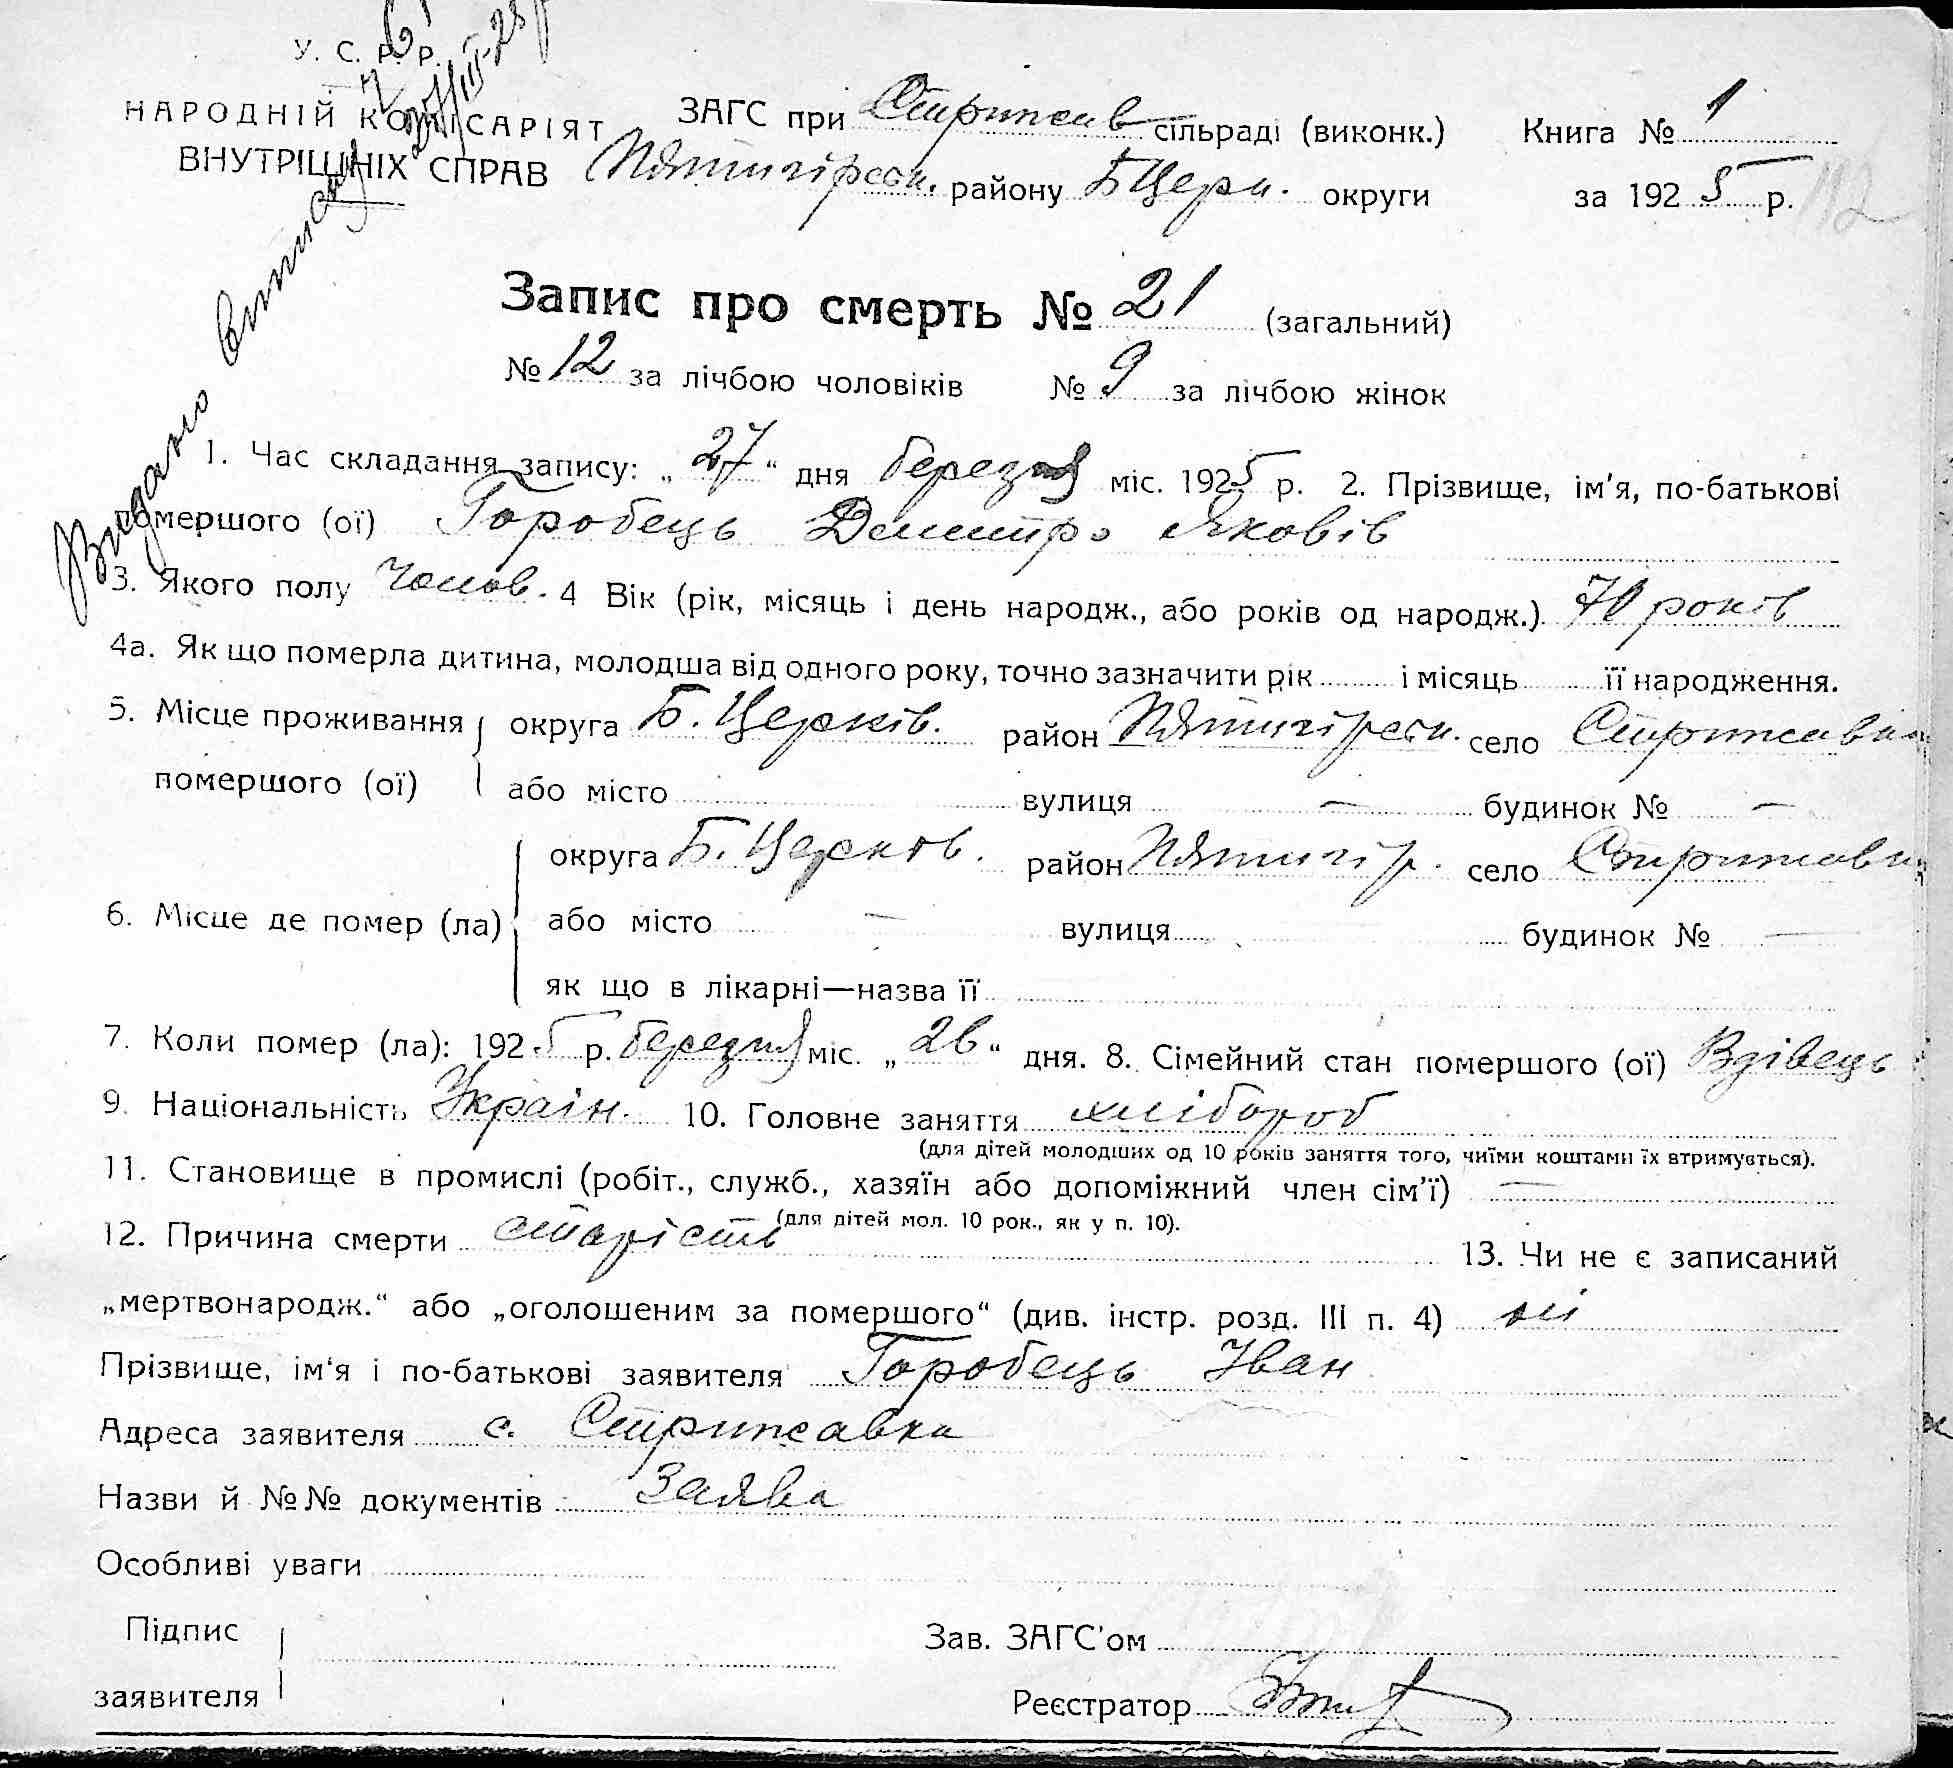 У. С. Р. Р.
НАРОДНІЙ КОМІСАРІЯТ
ВНУТРІШНІХ СПРАВ
ЗАГС при Стрижав сільраді (виконк.) Книга № 1
Пятигірськ. району БЦерк. округи за 1925 р.
112
Видано виписку
27/III-25
Запис про смерть № 21 (загальний)
№ 12 за лічбою чоловіків № 9 за лічбою жінок
1. Час складання запису: „ 27 “ дня березня міс. 1925 р. 2. Прізвище, ім'я, по-батькові
помершого (ої) Горобець Дмитро Яковів
3. Якого полу чолов. 4 Вік (рік, місяць і день народж., або років од народж.) 70 років
4а. Як що померла дитина, молодша від одного року, точно зазначити рік і місяць її народження.
5. Місце проживання округа Б. Церків. район Пятигірськ. село Стрижавка
помершого (ої) або місто вулиця — будинок № —
округа Б. Церков. район Пятигір. село Стрижавка
6. Місце де помер (ла) або місто — вулиця будинок № —
як що в лікарні—назва її
7. Коли помер (ла): 1925 р. березня міс. „ 26 “ дня. 8. Сімейний стан помершого (ої) Вдівець
9. Національність Україн. 10. Головне заняття хлібороб
(для дітей молодших од 10 років заняття того, чиїми коштами їх втримується).
11. Становище в промислі (робіт., служб., хазяїн або допоміжний член сім'ї) —
(для дітей мол. 10 рок., як у п. 10).
12. Причина смерти старість 13. Чи не є записаний
„мертвонародж.“ або „оголошеним за помершого“ (див. інстр. розд. III п. 4) ні
Прізвище, ім'я і по-батькові заявителя Горобець Іван
Адреса заявителя с. Стрижавка
Назви й №№ документів Заява
Особливі уваги
Підпис
заявителя
Зав. ЗАГС'ом
Реєстратор